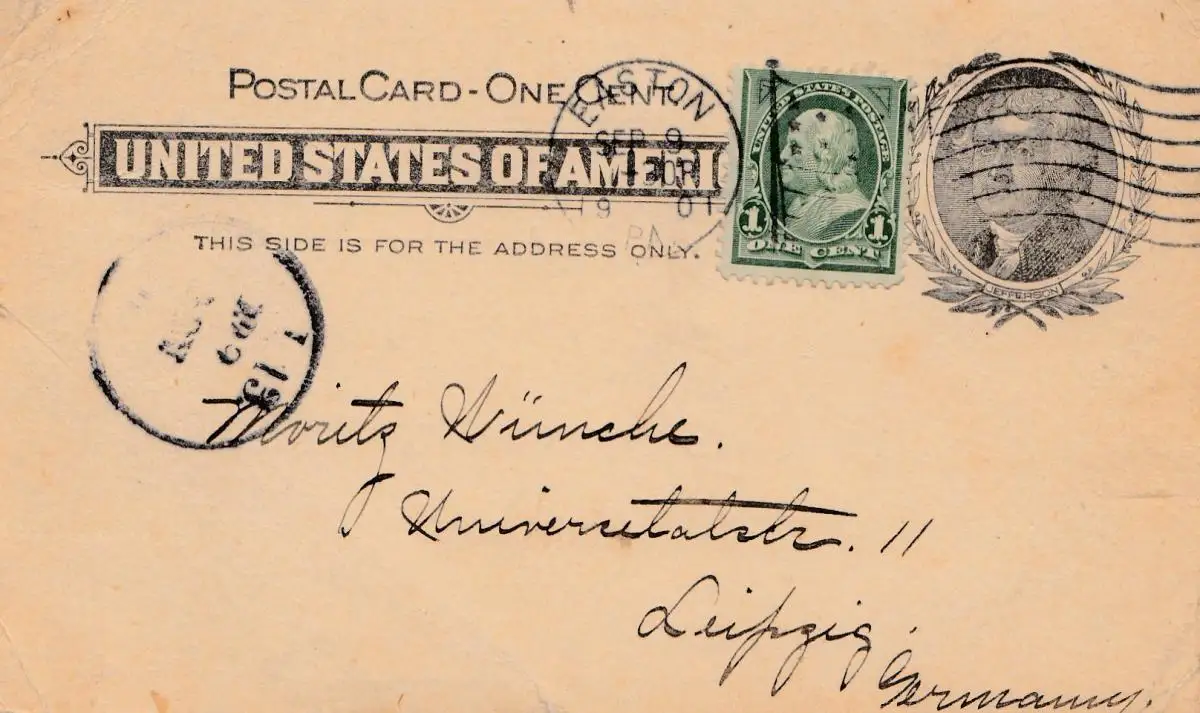 POSTAL CARD - ONE CENT.
UNITED STATES OF AMERI
THIS SIDE IS FOR THE ADDRESS ONLY.
EASTON
SEP 9
19 01
PA
UNITED STATES POSTAGE
1 1
ONE CENT
JEFFERSON
Moritz Wünche.
Universetatstr. 11
Leipzig.
Germany.